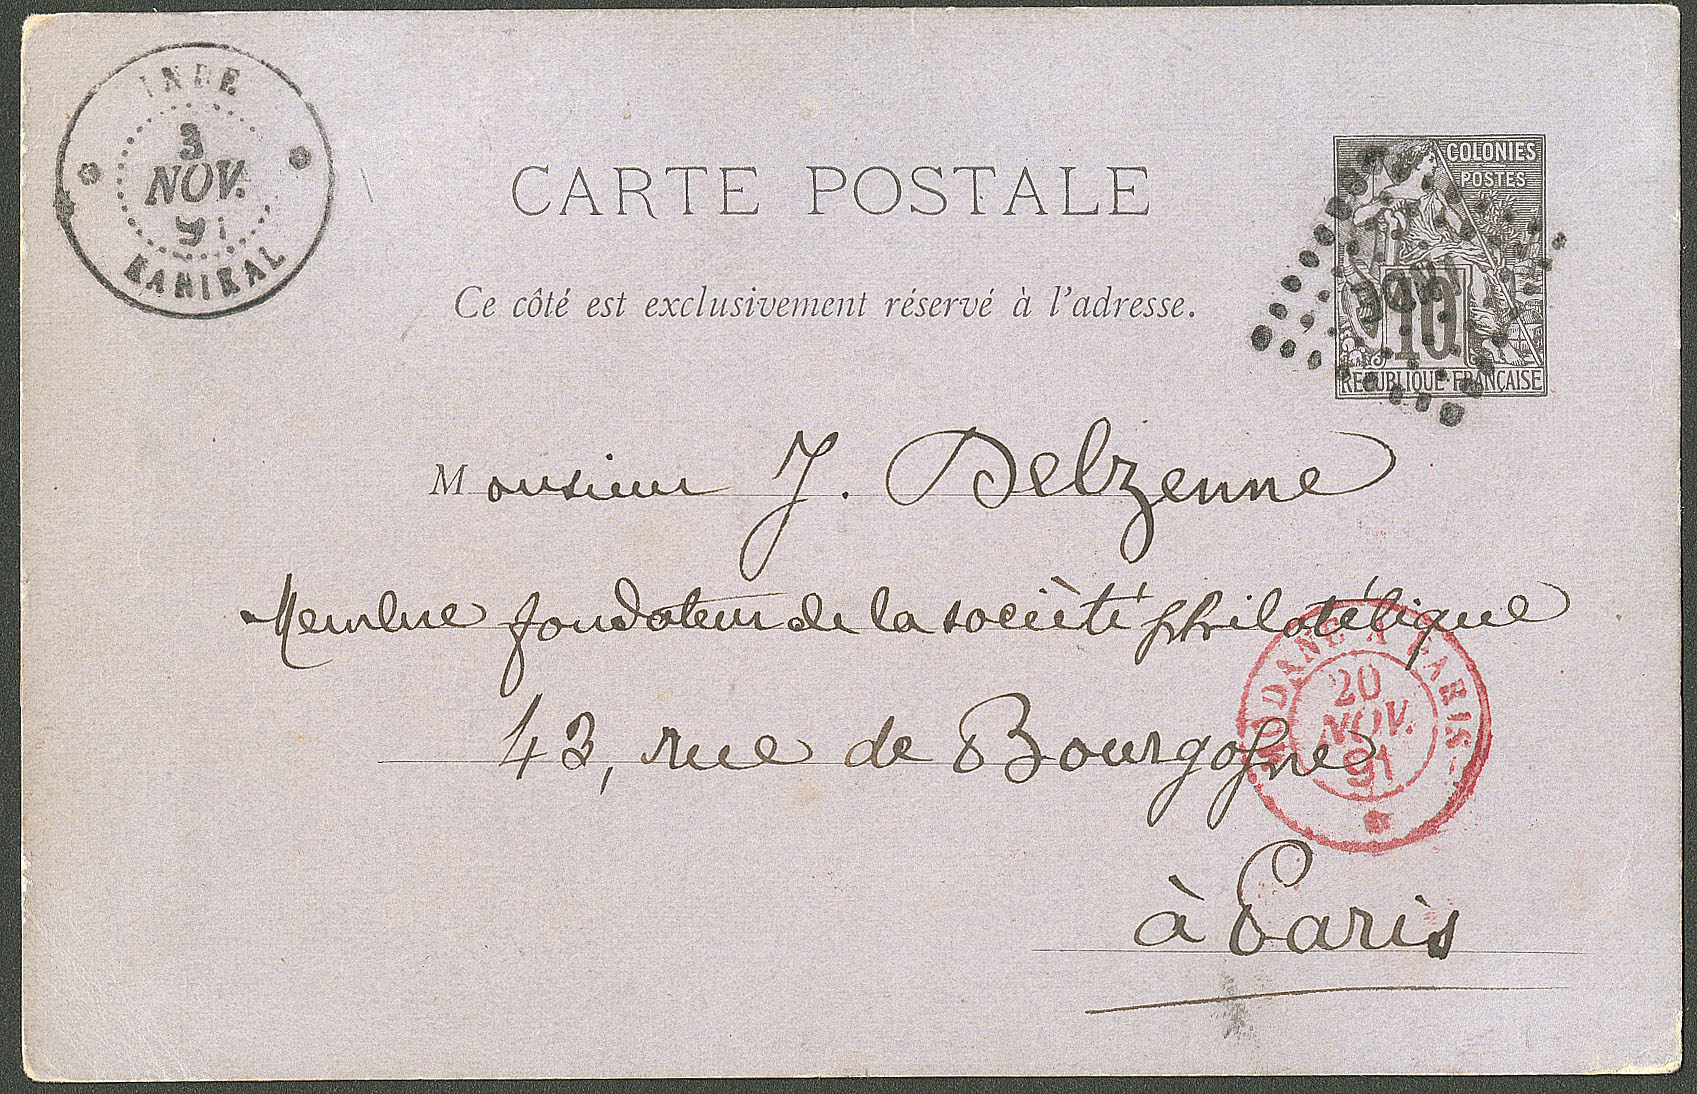 INDE
3
NOV.
91
KARIKAL
CARTE POSTALE
Ce côté est exclusivement réservé à l'adresse.
COLONIES
POSTES
10
REPUBLIQUE FRANÇAISE
Monsieur J. Delzenne
Membre fondateur de la socièté philatélique
43, rue de Bourgogne
à Paris
MODANE A PARIS
20
NOV.
91